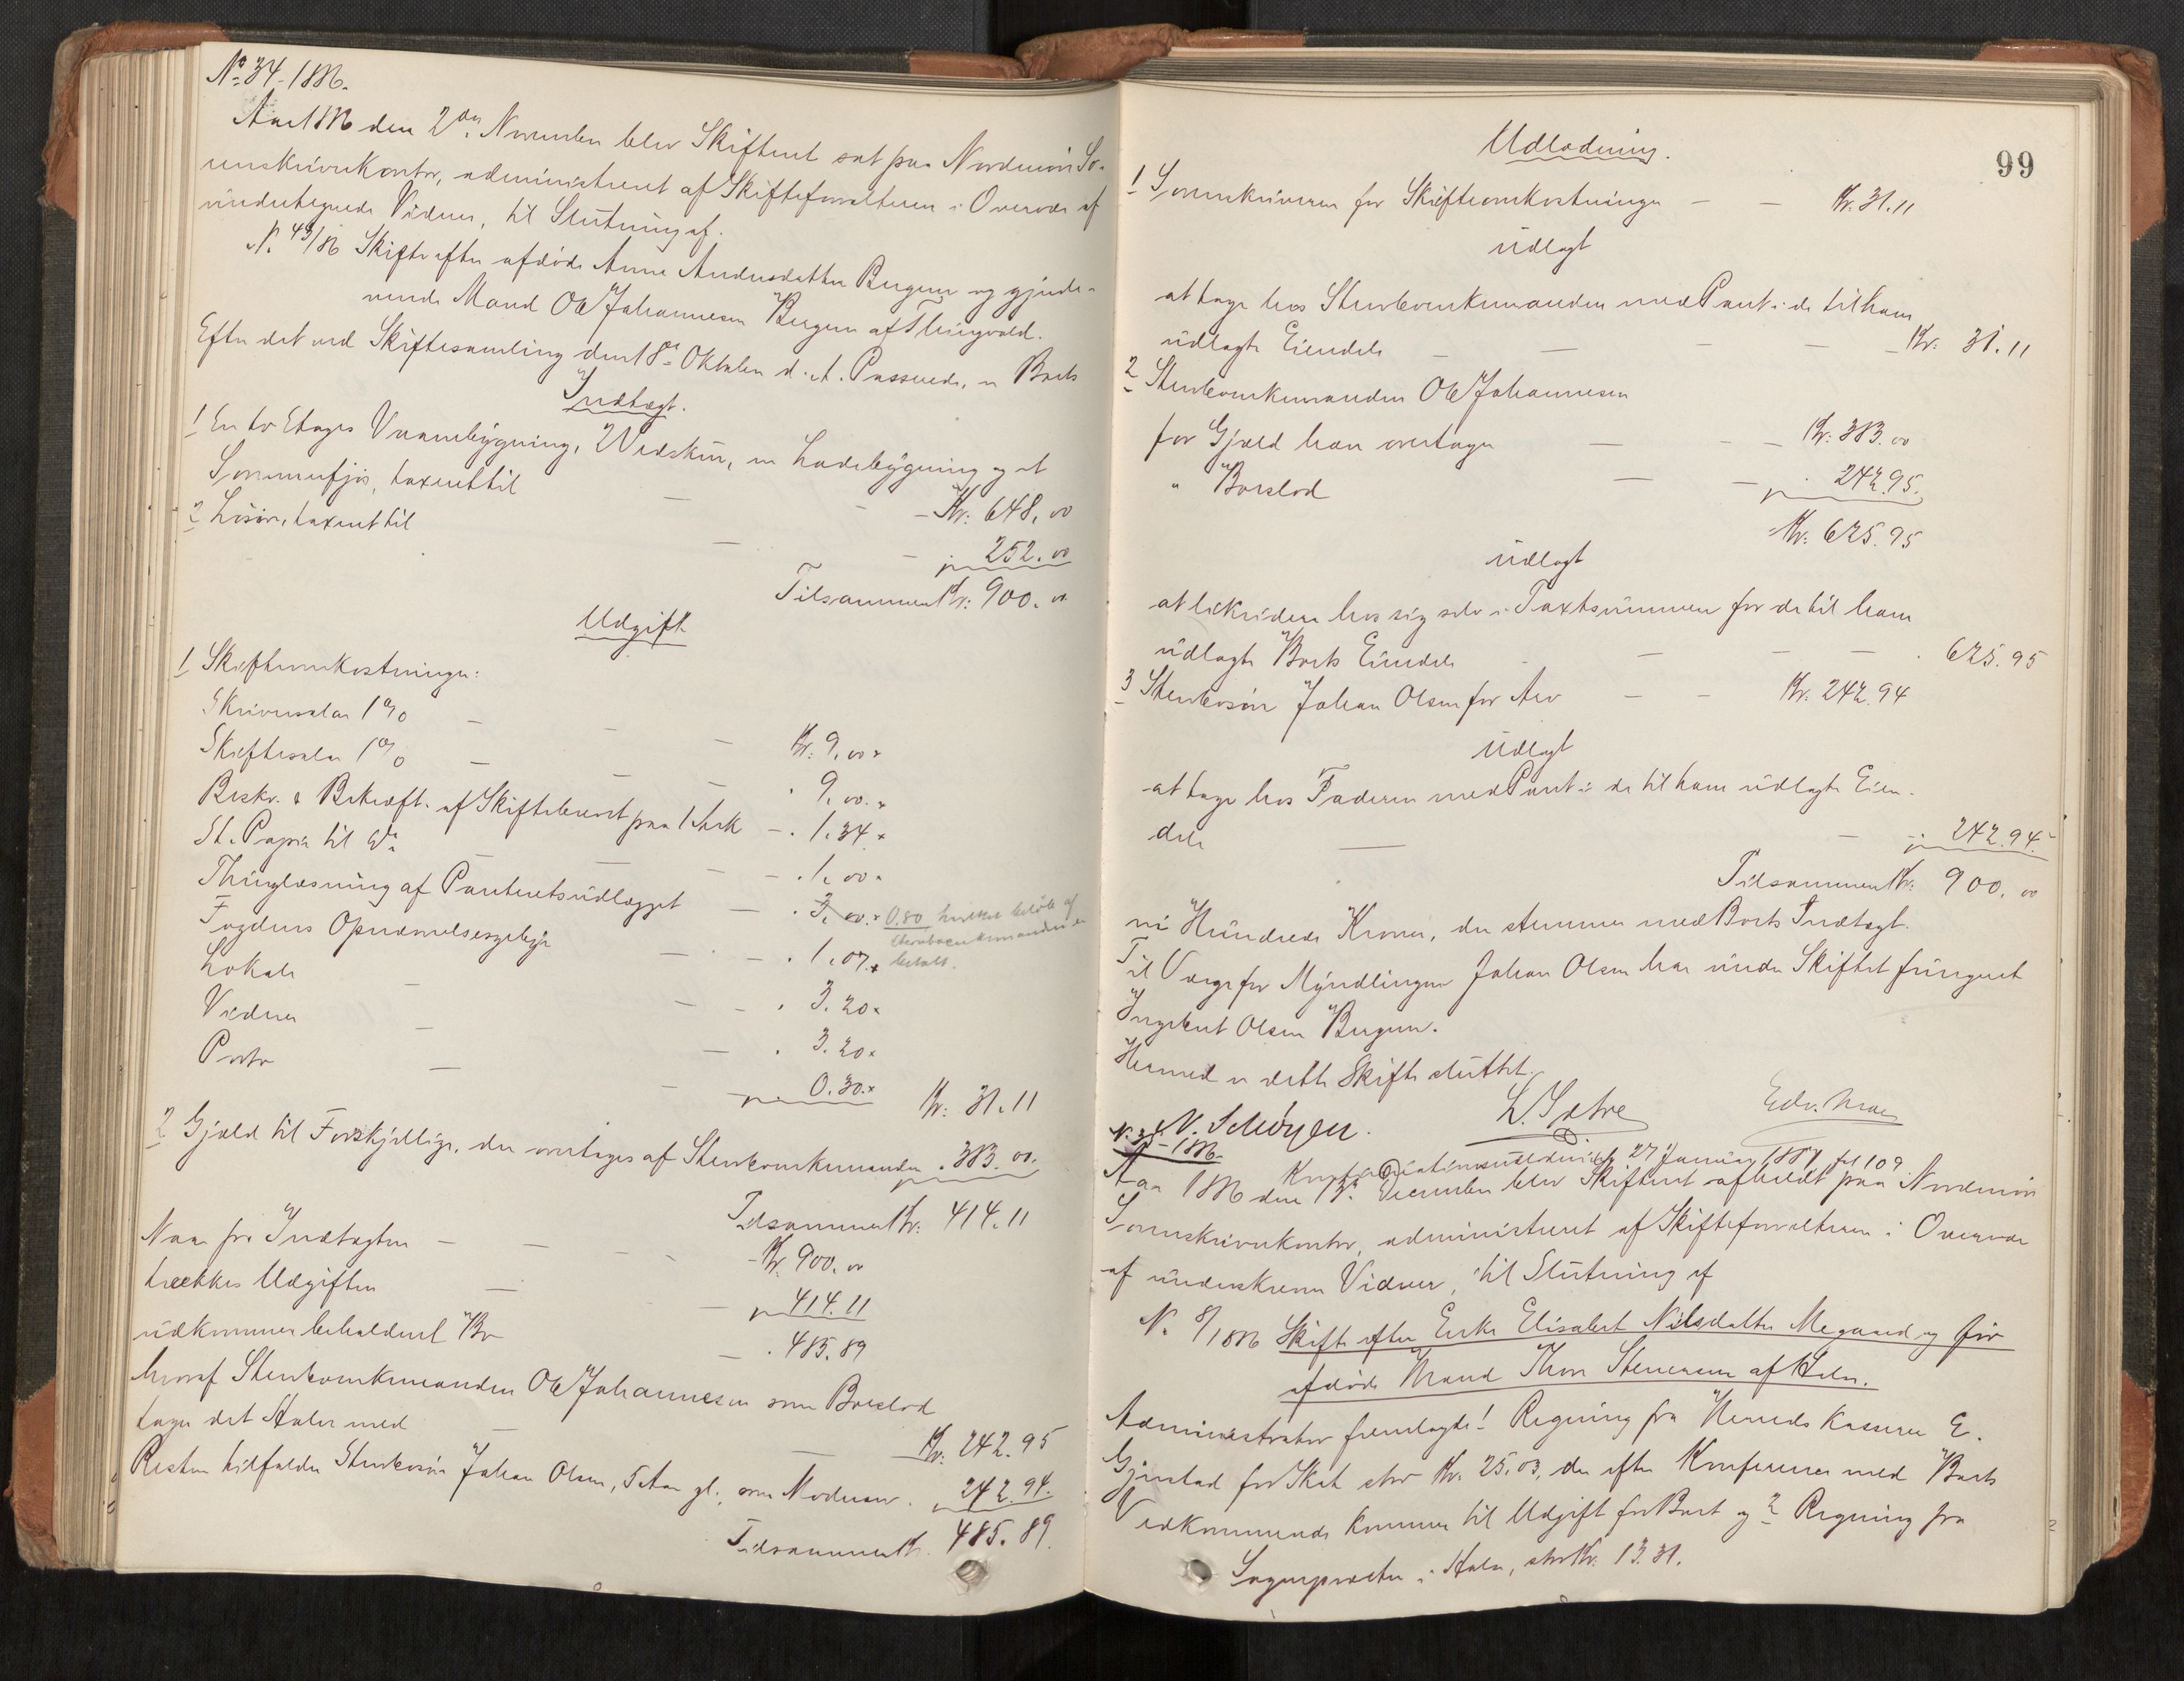 No 34 - 1886.
Aar 1886 den 2den November blev Skifteret sat paa Nordmøre So-
renskriverkontor, administreret af Skifteforvalteren i Overvær af
undertegnede Vidner, til Slutning af.
N. 49/86 Skifte efter afdøde Anne Andersdatter Bergem og gjenle-
vende Mand Ole Johannesen Bergem af Thingvold.
Efter det ved Skiftesamling den 18de Oktober d. A. Passerede, er Boets
Indtægt.
1 En to Etages Vaanebygning, Vedskur, en Ladebygning og et
Sommerfjøs, taxeret til — - - Kr: 648,00
2 Løsøre, taxeret til — - " 252.00
Tilsammen Kr: 900.00
Udgift
1 Skifteomkostninger:
Skriversalær 1% - - — Kr. 9,00 "
Skiftesalær 1% — — — " 9,00. "
Beskr. & Bekræft. af Skiftebrevet paa 1 Ark - . 1.34 "
St. Papir til do — — - . 1,00 "
Thinglæsning af Panteretsudlægget — . 3,00. " 0.80 hvilket beløb af
Stervboenkemanden er
betalt.
Fogdens Opnævnelsesgebyr — - . 1.07 "
Lokale - — - . 3.20 "
Vidner - — . 3.20 "
Porto — — " 0.30. " Kr. 31.11
2 Gjæld til Forskjellige, der overtages af Stervboenkemanden . 383.00.
Tilsammen Kr: 414.11
Naar fra Indtægten - - - - - Kr. 900.00
trækkes Udgiften — — " 414.11
udkommer beholdent Bo — . 485.89
hvoraf Stervboenkemanden Ole Johannesen som Boeslod
tager det Halve med — — Kr. 242.95
Resten tilfalder Stervbosøn Johan Olsen, 5 Aar gl. som Mødrearv. " 242.94.
Tilsammen Kr. 485.89.
99
Udlodning.
1 Sorenskriveren for Skifteomkostninger — — Kr. 31.11
udlagt
at tage hos Stervboenkemanden med Pant i de til ham
udlagte Eiendele — — - — Kr: 31.11
2 Stervboenkemanden Ole Johannesen
for Gjæld han overtager — - - Kr: 383.00
" Boeslod — — " 242.95.
Kr. 625.95
udlagt
at likvidere hos sig selv i Taxtsummen for de til ham
udlagte Boets Eiendele - — — — . 625.95
3 Stervbosøn Johan Olsen for Arv — — Kr: 242.94
udlagt
at tage hos Faderen med Pant i de til ham udlagte Eien-
dele — — " 242.94.
Tilsammen Kr: 900,00
ni Hundrede Kroner, der stemmer med Boets Indtægt.
Til Værge for Myndlingen Johan Olsen har under Skiftet fungeret
Ingebret Olsen Bergem.
Hermed er dette Skifte sluttet.
N. Schøyen. L. Sætre Edv. Moe
N. 35 - 1886. 27 Januar 1887 fol 109
Aar 1886 den 13de December blev Skifteret afholdt paa Nordmøre
Sorenskriverkontor, administreret af Skifteforvalteren i Overvær
af underskrevne Vidner, til Slutning af
N. 8/1886 Skifte efter Enke Elisabet Nilsdatter Megaard og før
afdøde Mand Thore Steneresen af Halse.
Administrator fremlagde: 1 Regning fra Herredskasserer E.
Gjerstad for Skat stor Kr. 25,03, der efter Konference med Boets
Vedkommende kommer til Udgift for Boet og 2 Regning fra
Sognepræsten i Halse, stor Kr. 13.31.